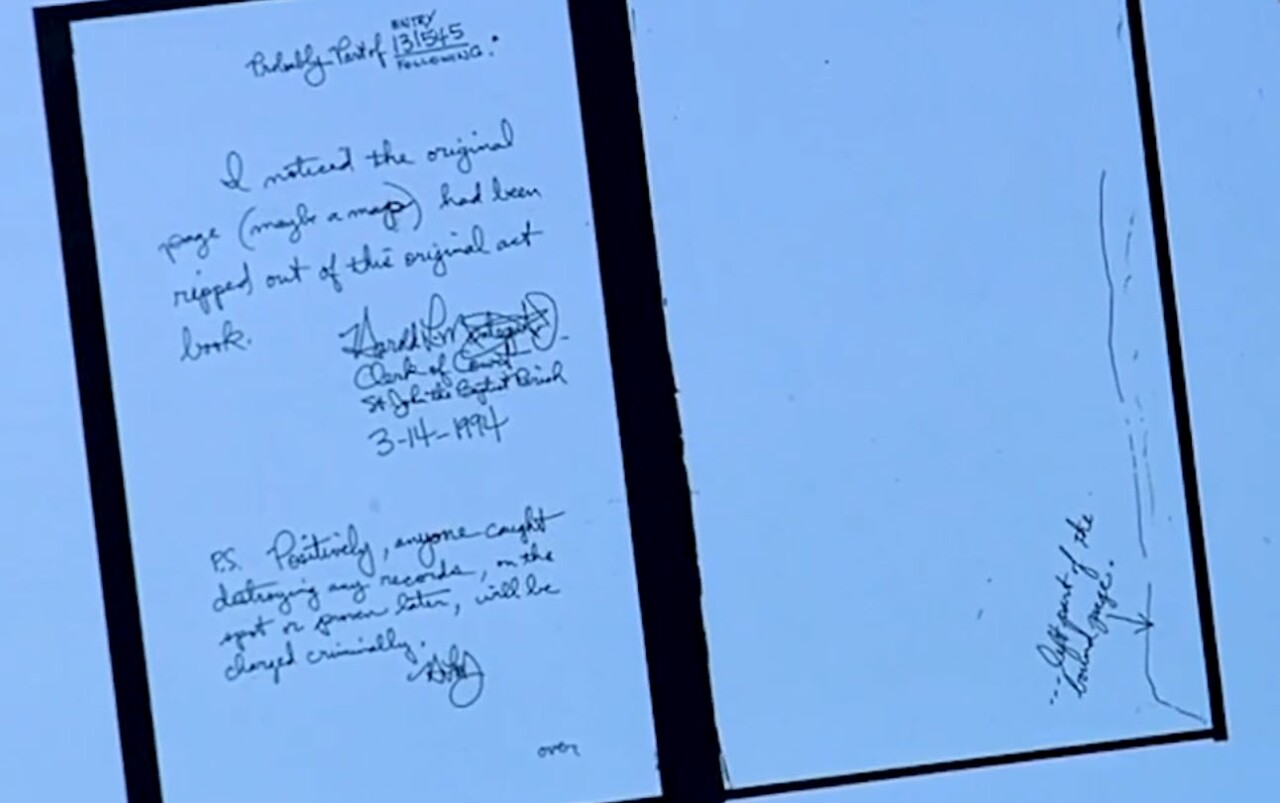 ENTRY
Probably Part of 131545.
FOLLOWING
I noticed the original
page (maybe a map) had been
ripped out of this original act
book.
Harold L.
Clerk of Court
St John the Baptist Parish
3-14-1994
P.S. Positively, anyone caught
destroying any records, on the
spot or proven later, will be
charged criminally.
over
... left part of the
bound page.